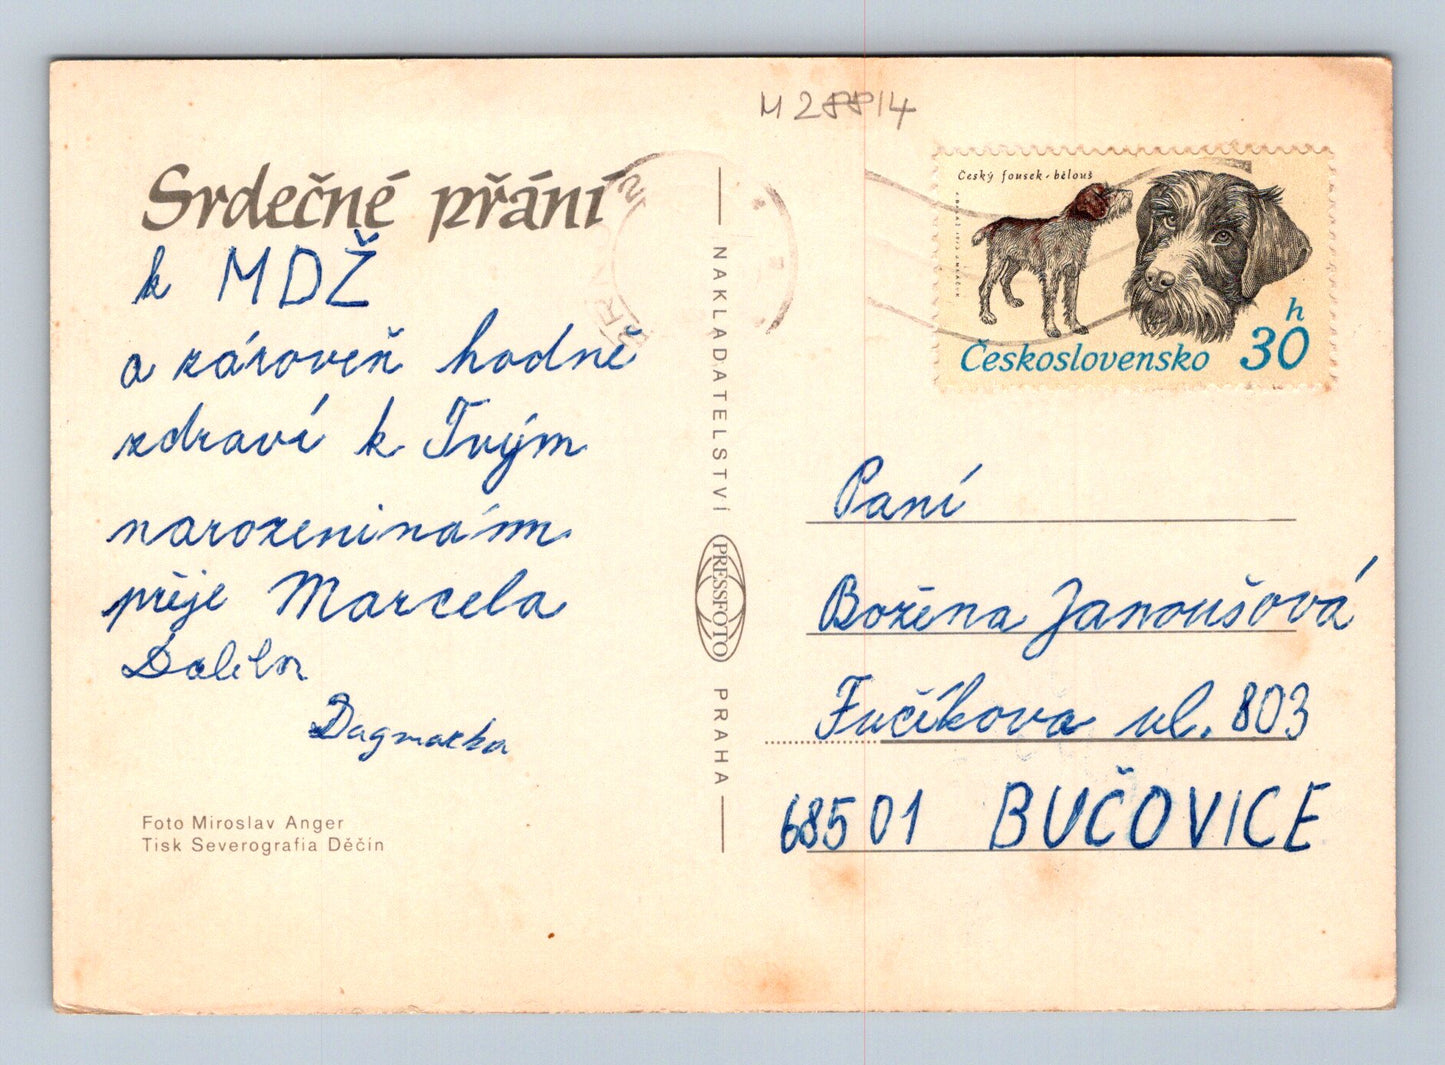 M 28814
Srdečné přání
k MDŽ
a zároveň hodně
zdraví k Tvým
narozeninám
přeje Marcela
Dalibor
Dagmarka
Foto Miroslav Anger
Tisk Severografia Děčín
NAKLADATELSTVÍ PRESSFOTO PRAHA
Český fousek - bělouš
h
Československo 30
Paní
Božena Janoušová
Fučíkova ul. 803
68501 BUČOVICE